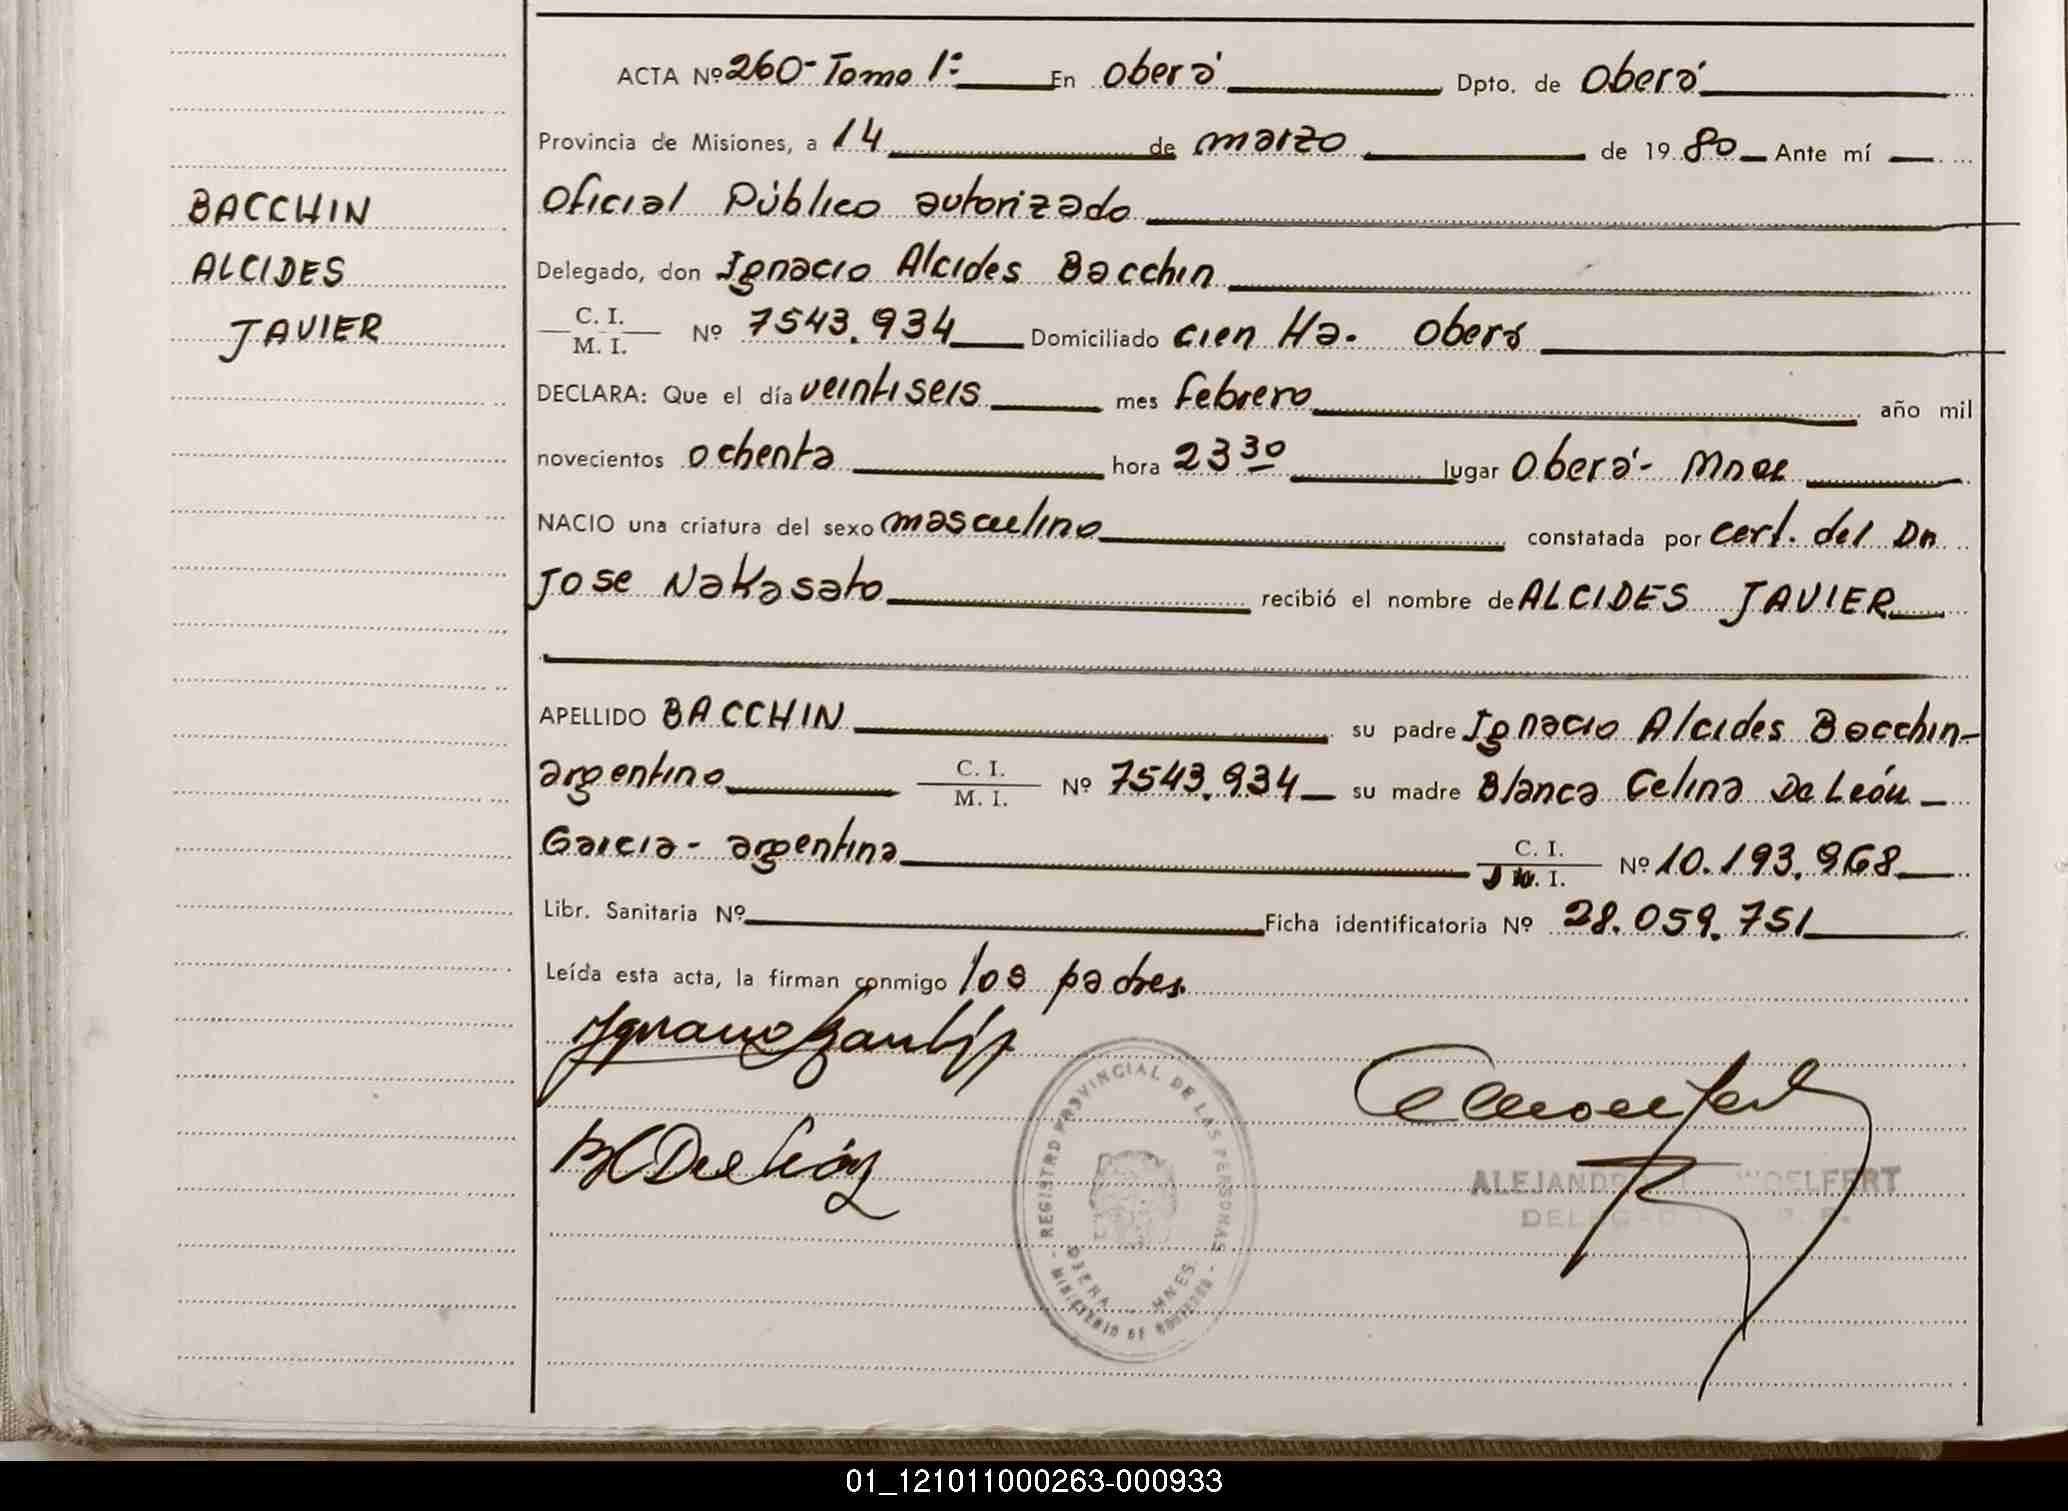 ACTA Nº 260- Tomo 1º En Oberá Dpto. de Oberá
Provincia de Misiones, a 14 de marzo de 1980 Ante mí
BACCHIN
ALCIDES
JAVIER
Oficial Público autorizado
Delegado, don Ignacio Alcides Bacchin
C. I.
M. I. Nº 7543.934 Domiciliado cien Ha. Oberá
DECLARA: Que el día veintiseis mes febrero año mil
novecientos ochenta hora 23 30 lugar Oberá- Mnes
NACIO una criatura del sexo masculino constatada por cert. del Dr.
Jose Nakasato recibió el nombre de ALCIDES JAVIER
APELLIDO BACCHIN su padre Ignacio Alcides Bacchin-
argentino C. I.
M. I. Nº 7543.934 su madre Blanca Celina De León
Garcia- argentina C. I.
I. Nº 10.193.968
Libr. Sanitaria Nº Ficha identificatoria Nº 28.059.751
Leída esta acta, la firman conmigo los padres.
REGISTRO PROVINCIAL DE LAS PERSONAS
OBERA - MNES.
MINISTERIO DE GOBIERNO
DELEGADO
01_121011000263-000933